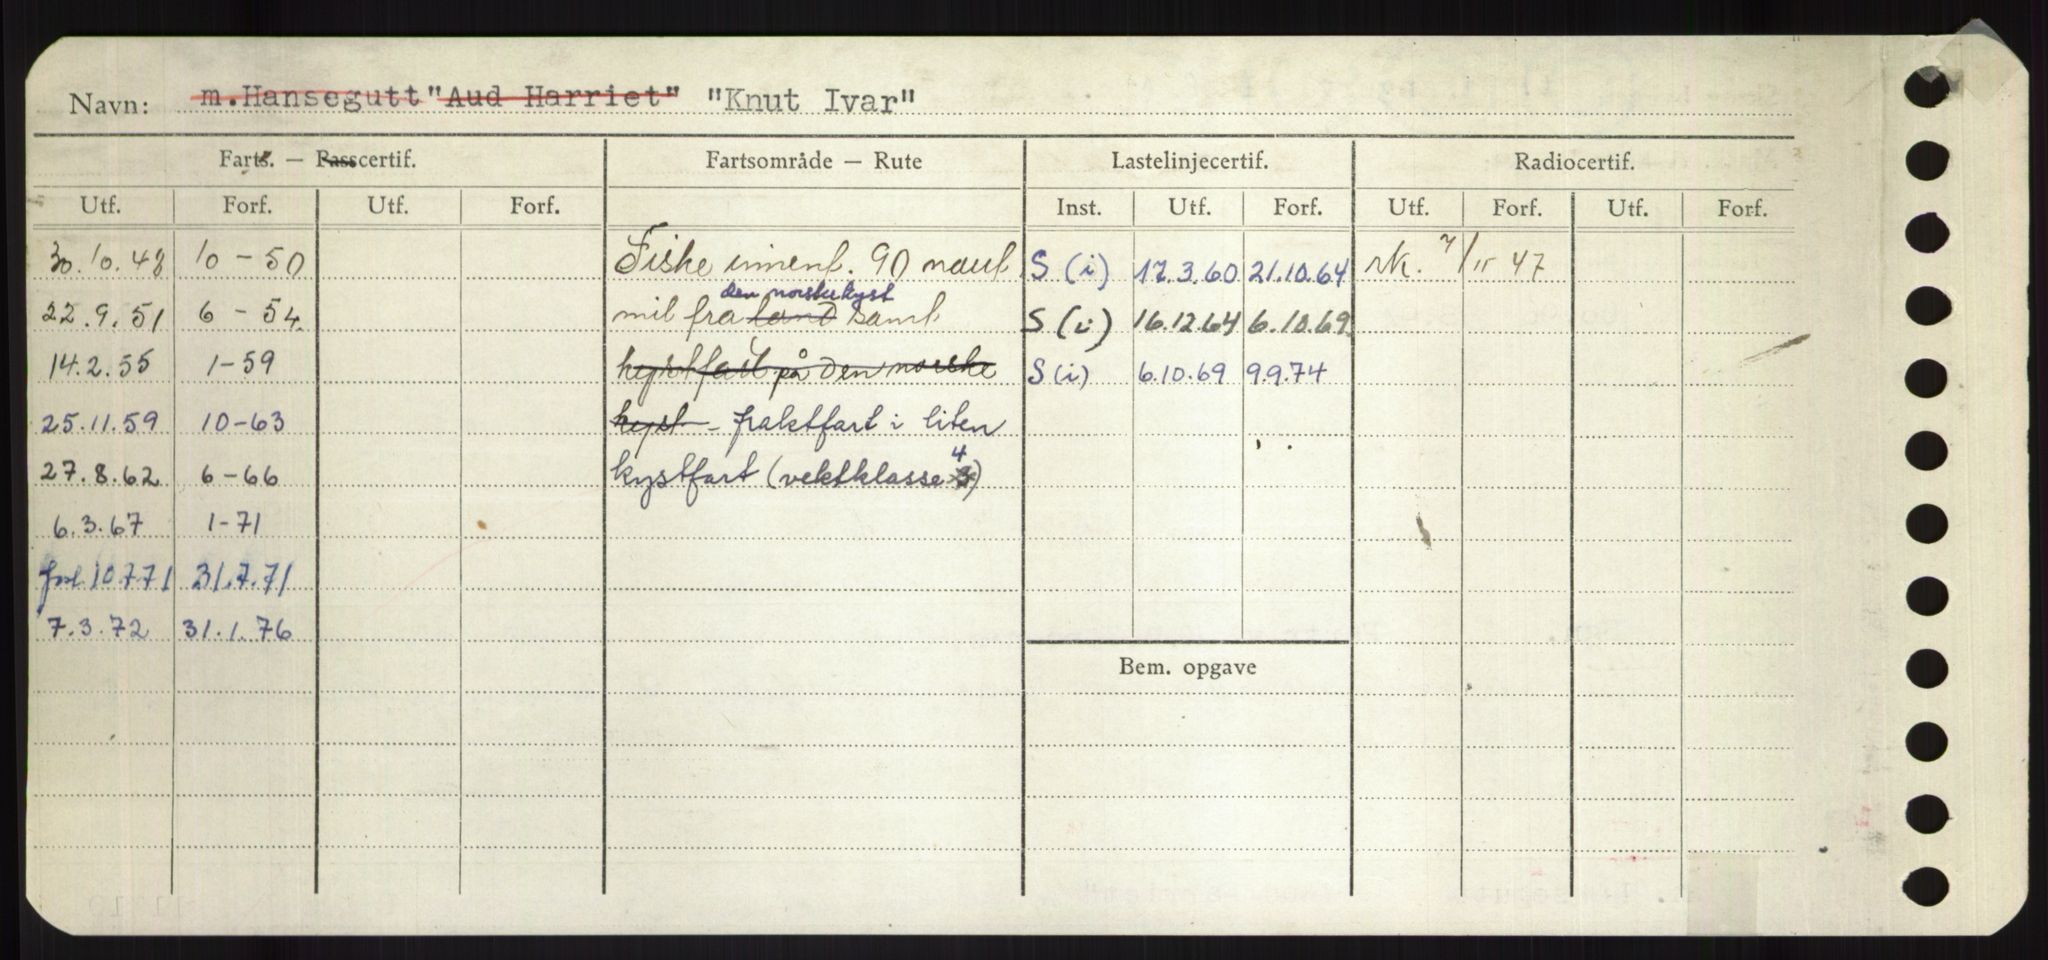 Navn: m.Hansegutt "Aud Harriet" "Knut Ivar"
Farts. — Passcertif. Fartsområde — Rute Lastelinjecertif. Radiocertif.
Utf. Forf. Utf. Forf. Inst. Utf. Forf. Utf. Forf. Utf. Forf.
30.10.48 10 - 50 Fiske innenf. 90 naut S (i) 17.3.60 21.10.64 rk. 7/11 47
den norske kyst
22.9.51 6 - 54 mil fra land samt S (i) 16.12.64 6.10.69
14.2.55 1-59 kystfart på den norske S (i) 6.10.69 9.9.74
25.11.59 10-63 kyst - fraktfart i liten
27.8.62 6-66 kystfart (vektklasse 3 4)
6.3.67 1-71
forl. 10.7.71 31.7.71
7.3.72 31.1.76
Bem. opgave